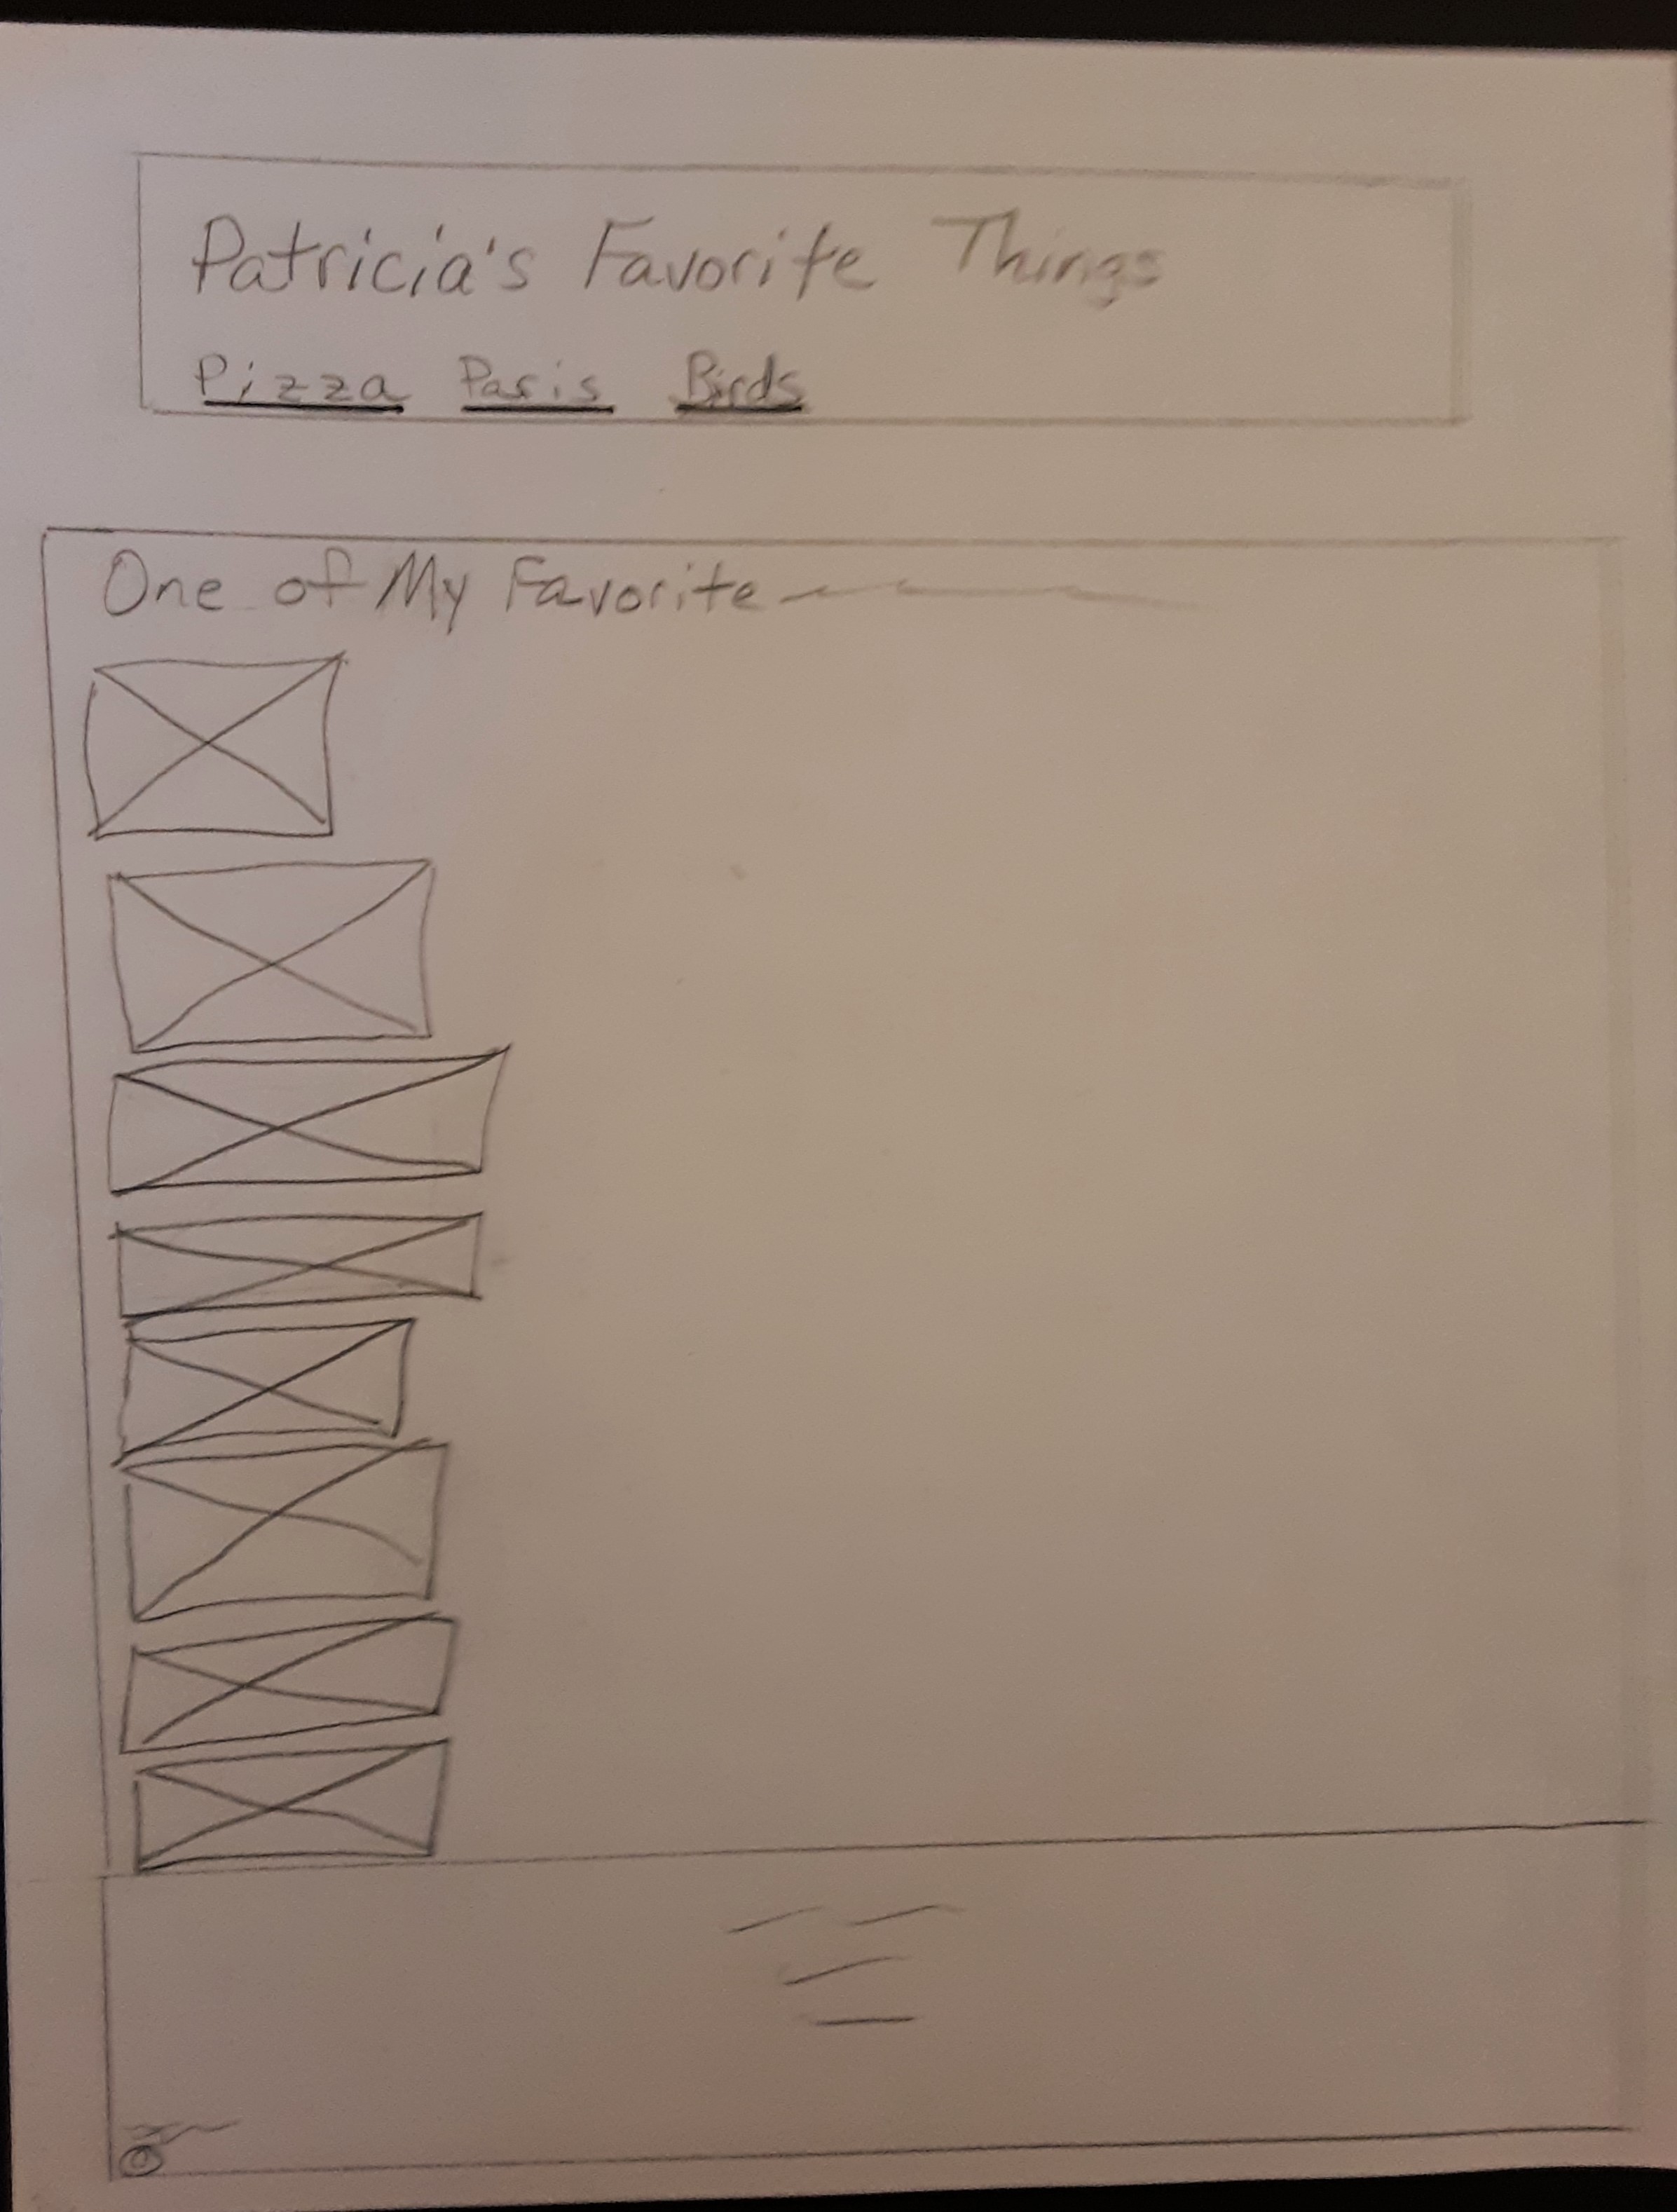 Patricia's Favorite Things
Pizza Paris Birds
One of My Favorite